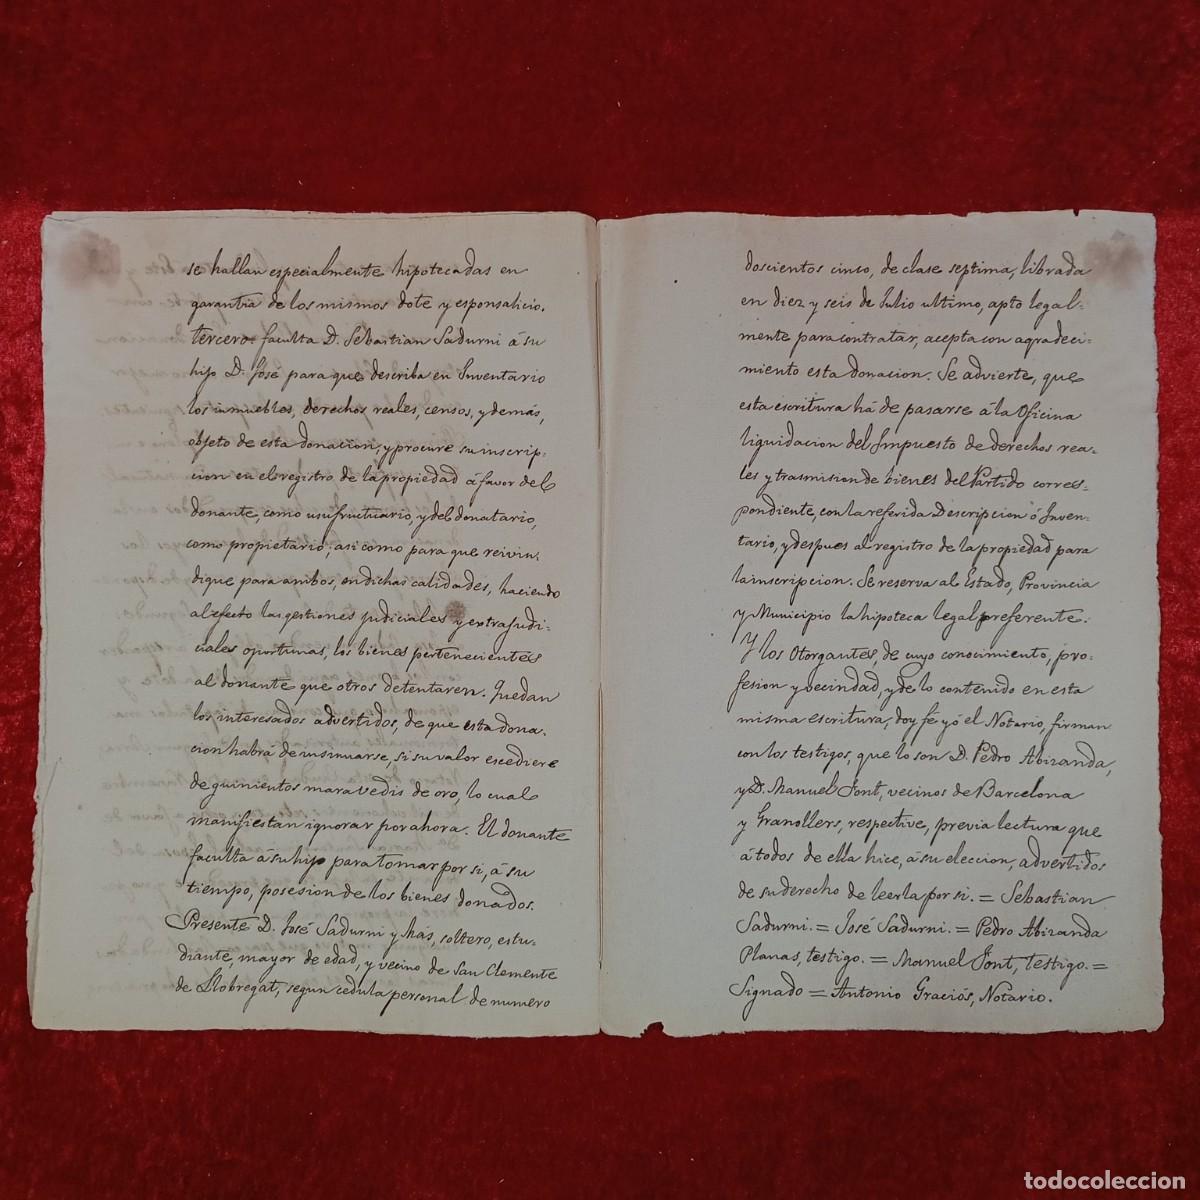 se hallan especialmente hipotecadas en
garantia de los mismos dote y esponsalicio.
tercero faculta D. Sebastian Sadurni á su
hijo D. José para que describa en Inventario
los inmuebles, derechos reales, censos, y demás,
objeto de esta donacion, y procure su inscrip-
cion en el registro de la propiedad á favor del
donante, como usufructuario, y del donatario,
como propietario; asi como para que reivin-
dique para ambos, en dichas calidades, haciendo
al efecto las gestiones judiciales y extrajudi-
ciales oportunas, los bienes pertenecientes
al donante que otros detentaren. Quedan
los interesados advertidos, de que esta dona-
cion habrá de insinuarse, si su valor escediere
de quinientos maravedis de oro, lo cual
manifiestan ignorar por ahora. El donante
faculta á su hijo para tomar por si, á su
tiempo, posesion de los bienes donados.
Presente D. José Sadurni y Más, soltero, estu-
diante, mayor de edad, y vecino de San Clemente
de Llobregat, segun cedula personal de numero
doscientos cinco, de clase septima, librada
en diez y seis de Julio ultimo, apto legal-
mente para contratar, acepta con agradeci-
miento esta donacion. Se advierte, que
esta escritura há de pasarse á la Oficina
liquidacion del Impuesto de derechos rea-
les y trasmision de bienes del Partido corres-
pondiente, con la referida Descripcion ó Inven-
tario, y despues al registro de la propiedad para
la inscripcion. Se reserva al Estado, Provincia
y Municipio la hipoteca legal preferente.
Y los Otorgantes, de cuyo conocimiento, pro-
fesion y vecindad, y de lo contenido en esta
misma escritura, doy fé yó el Notario, firman
con los testigos, que lo son D. Pedro Abizanda,
y D. Manuel Font, vecinos de Barcelona
y Granollers, respective, previa lectura que
á todos de ella hice, á su eleccion, advertidos
de su derecho de leerla por si. = Sebastian
Sadurni. = José Sadurni. = Pedro Abizanda
Planas, testigo. = Manuel Font, testigo. =
Signado = Antonio Graciós, Notario.
todocoleccion